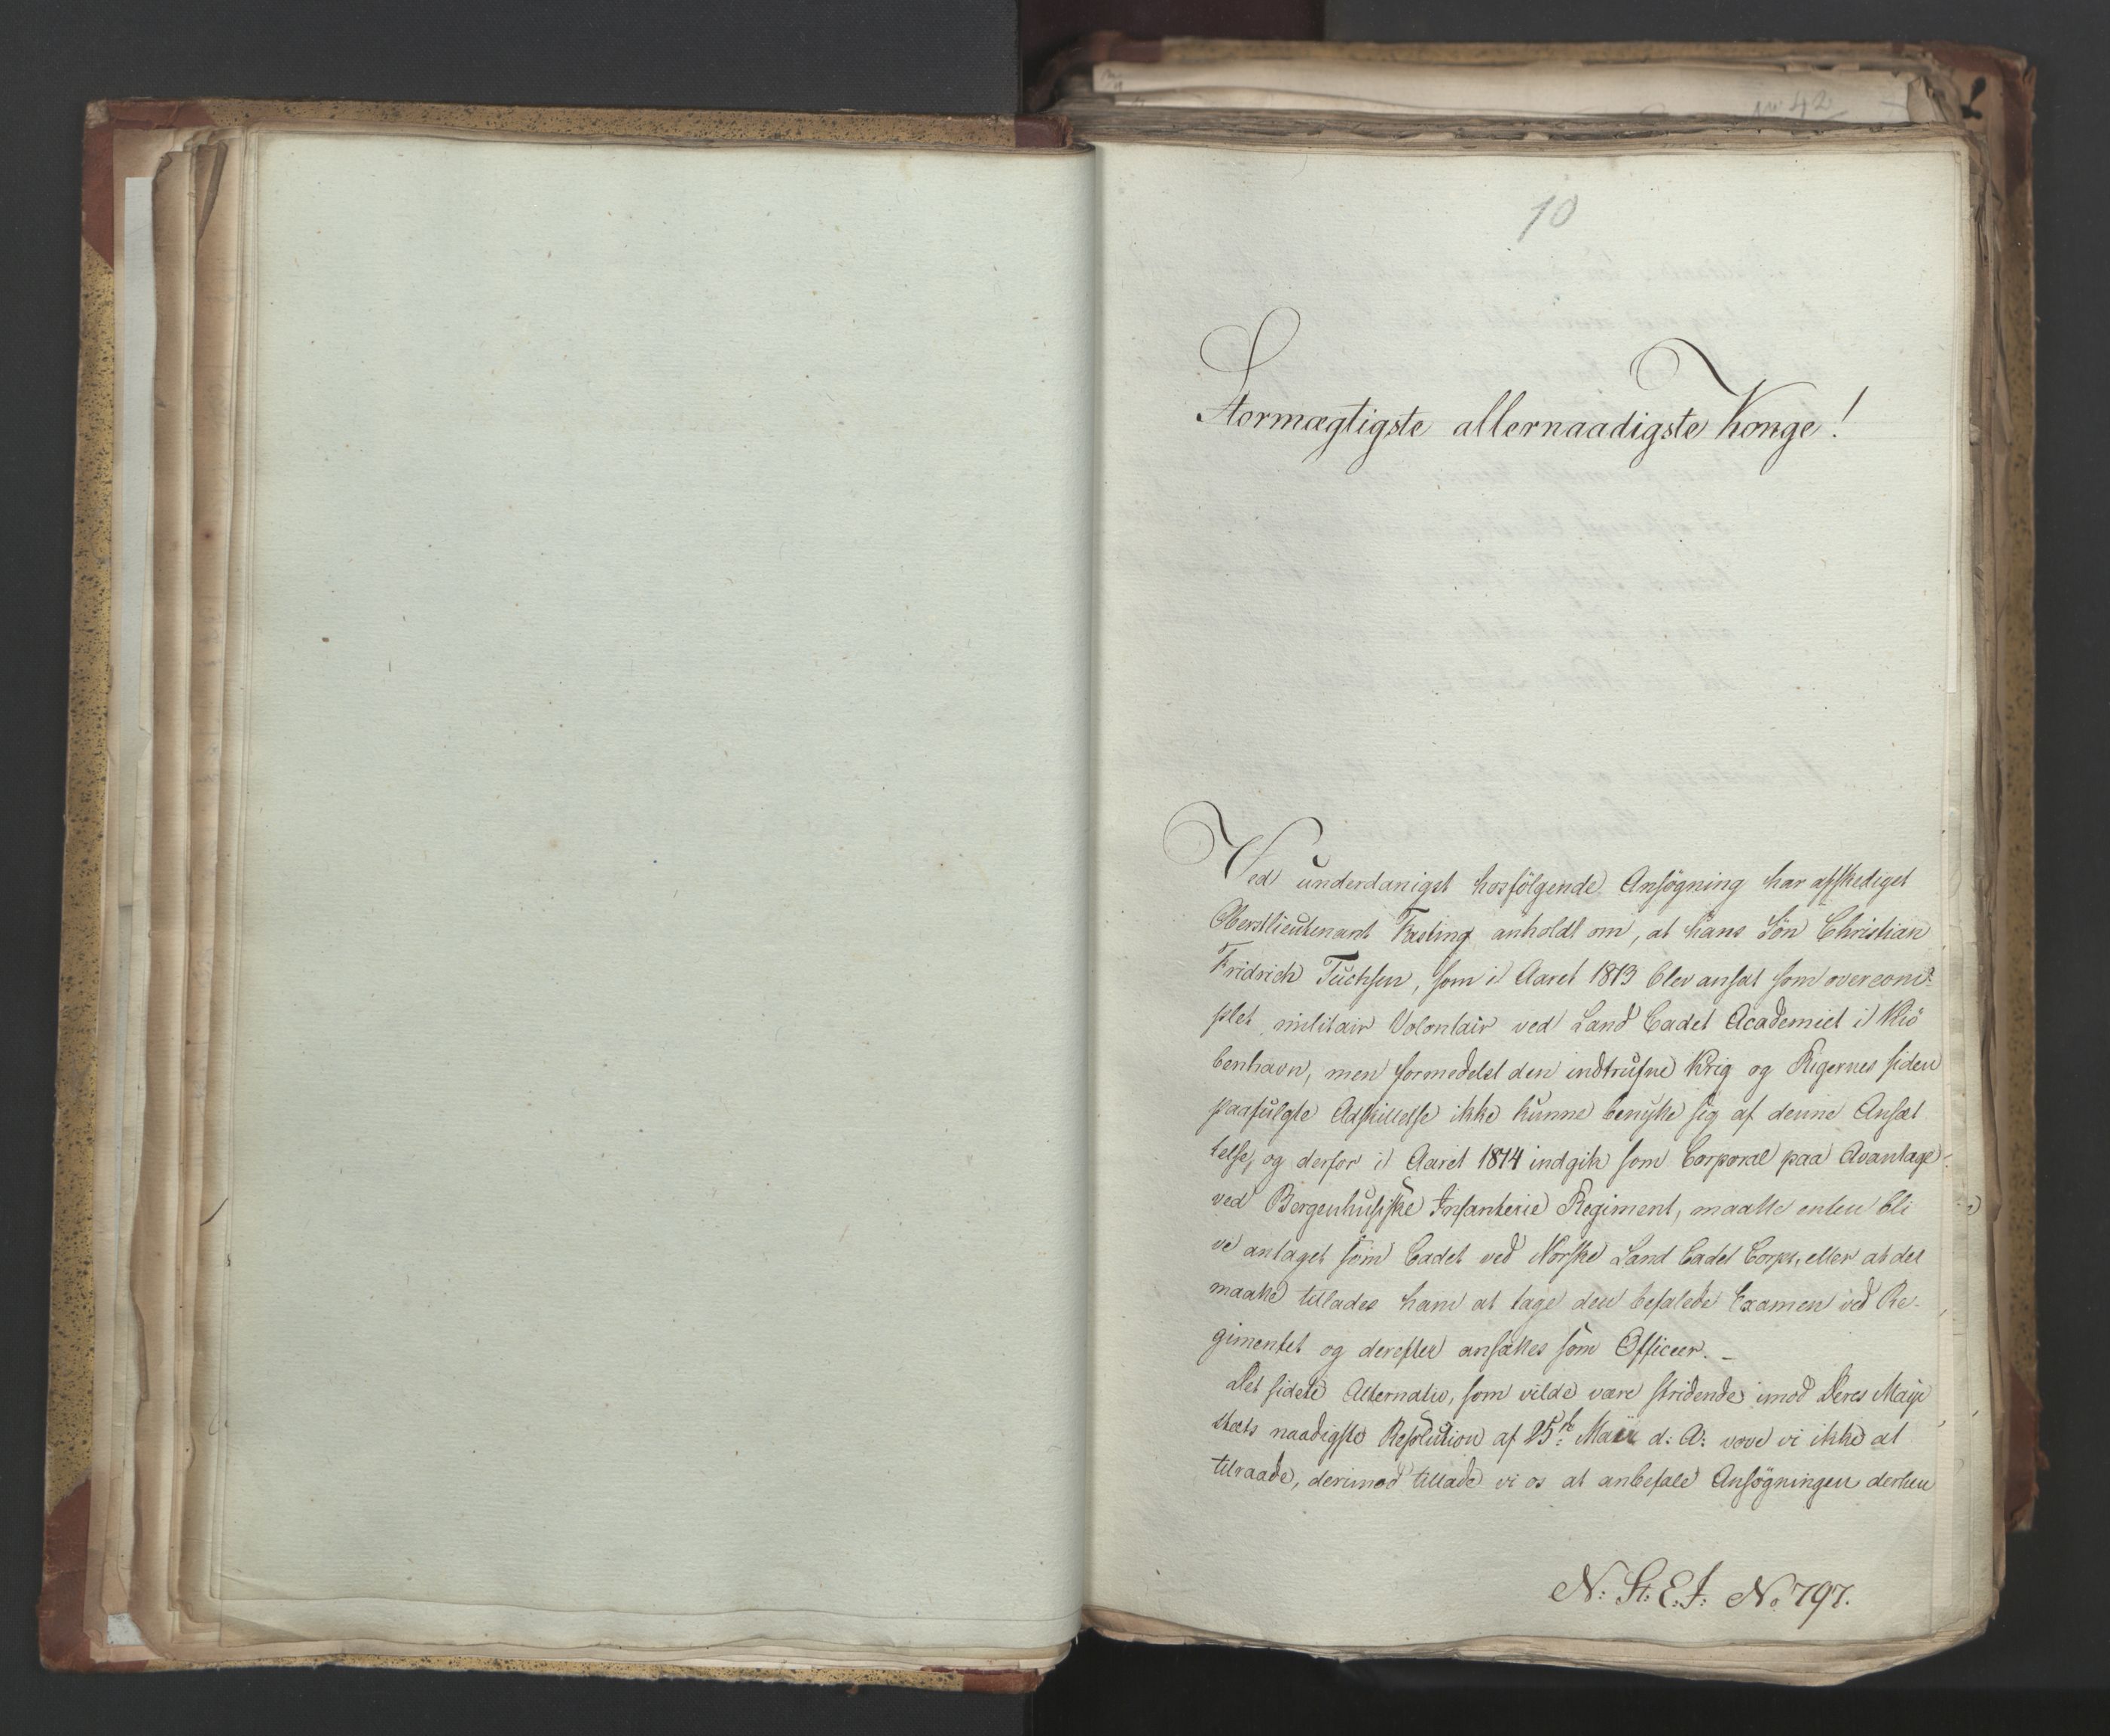 No 42
10
Stormægtigste allernaadigste Konge!
Ved underdanigst hosfölgende Ansögning har afskediget
Oberstlieutenant Fasting anholdt om, at hans Sön Christian
Fridrich Tuchsen, som i Aaret 1813 blev ansat som overcom-
plet militair Volontair ved Land Cadet Academiet i Kiö
benhavn, men formedelst den indtrufne Krig og Rigernes siden
paafulgte Adskillelse ikke kunne benytte sig af denne Ansæt
telse, og derfor i Aaret 1814 indgik som Corporal paa Avantage
ved Bergenhusiske Infanterie Regiment, maatte enten bli
ve antaget som Cadet ved Norske Land Cadet Corps, eller at det
maatte tillades ham at tage den befalede Examen ved Re-
gimentet og derefter ansættes som Officeer. -
Det sidste Alternativ, som vilde være stridende imod Deres Maje
stæts naadigste Resolution af 25de Maii d: A: vove vi ikke at
tilraade, derimod tillade vi os at anbefale Ansögningen derhen
N: St: E: J: No 797.